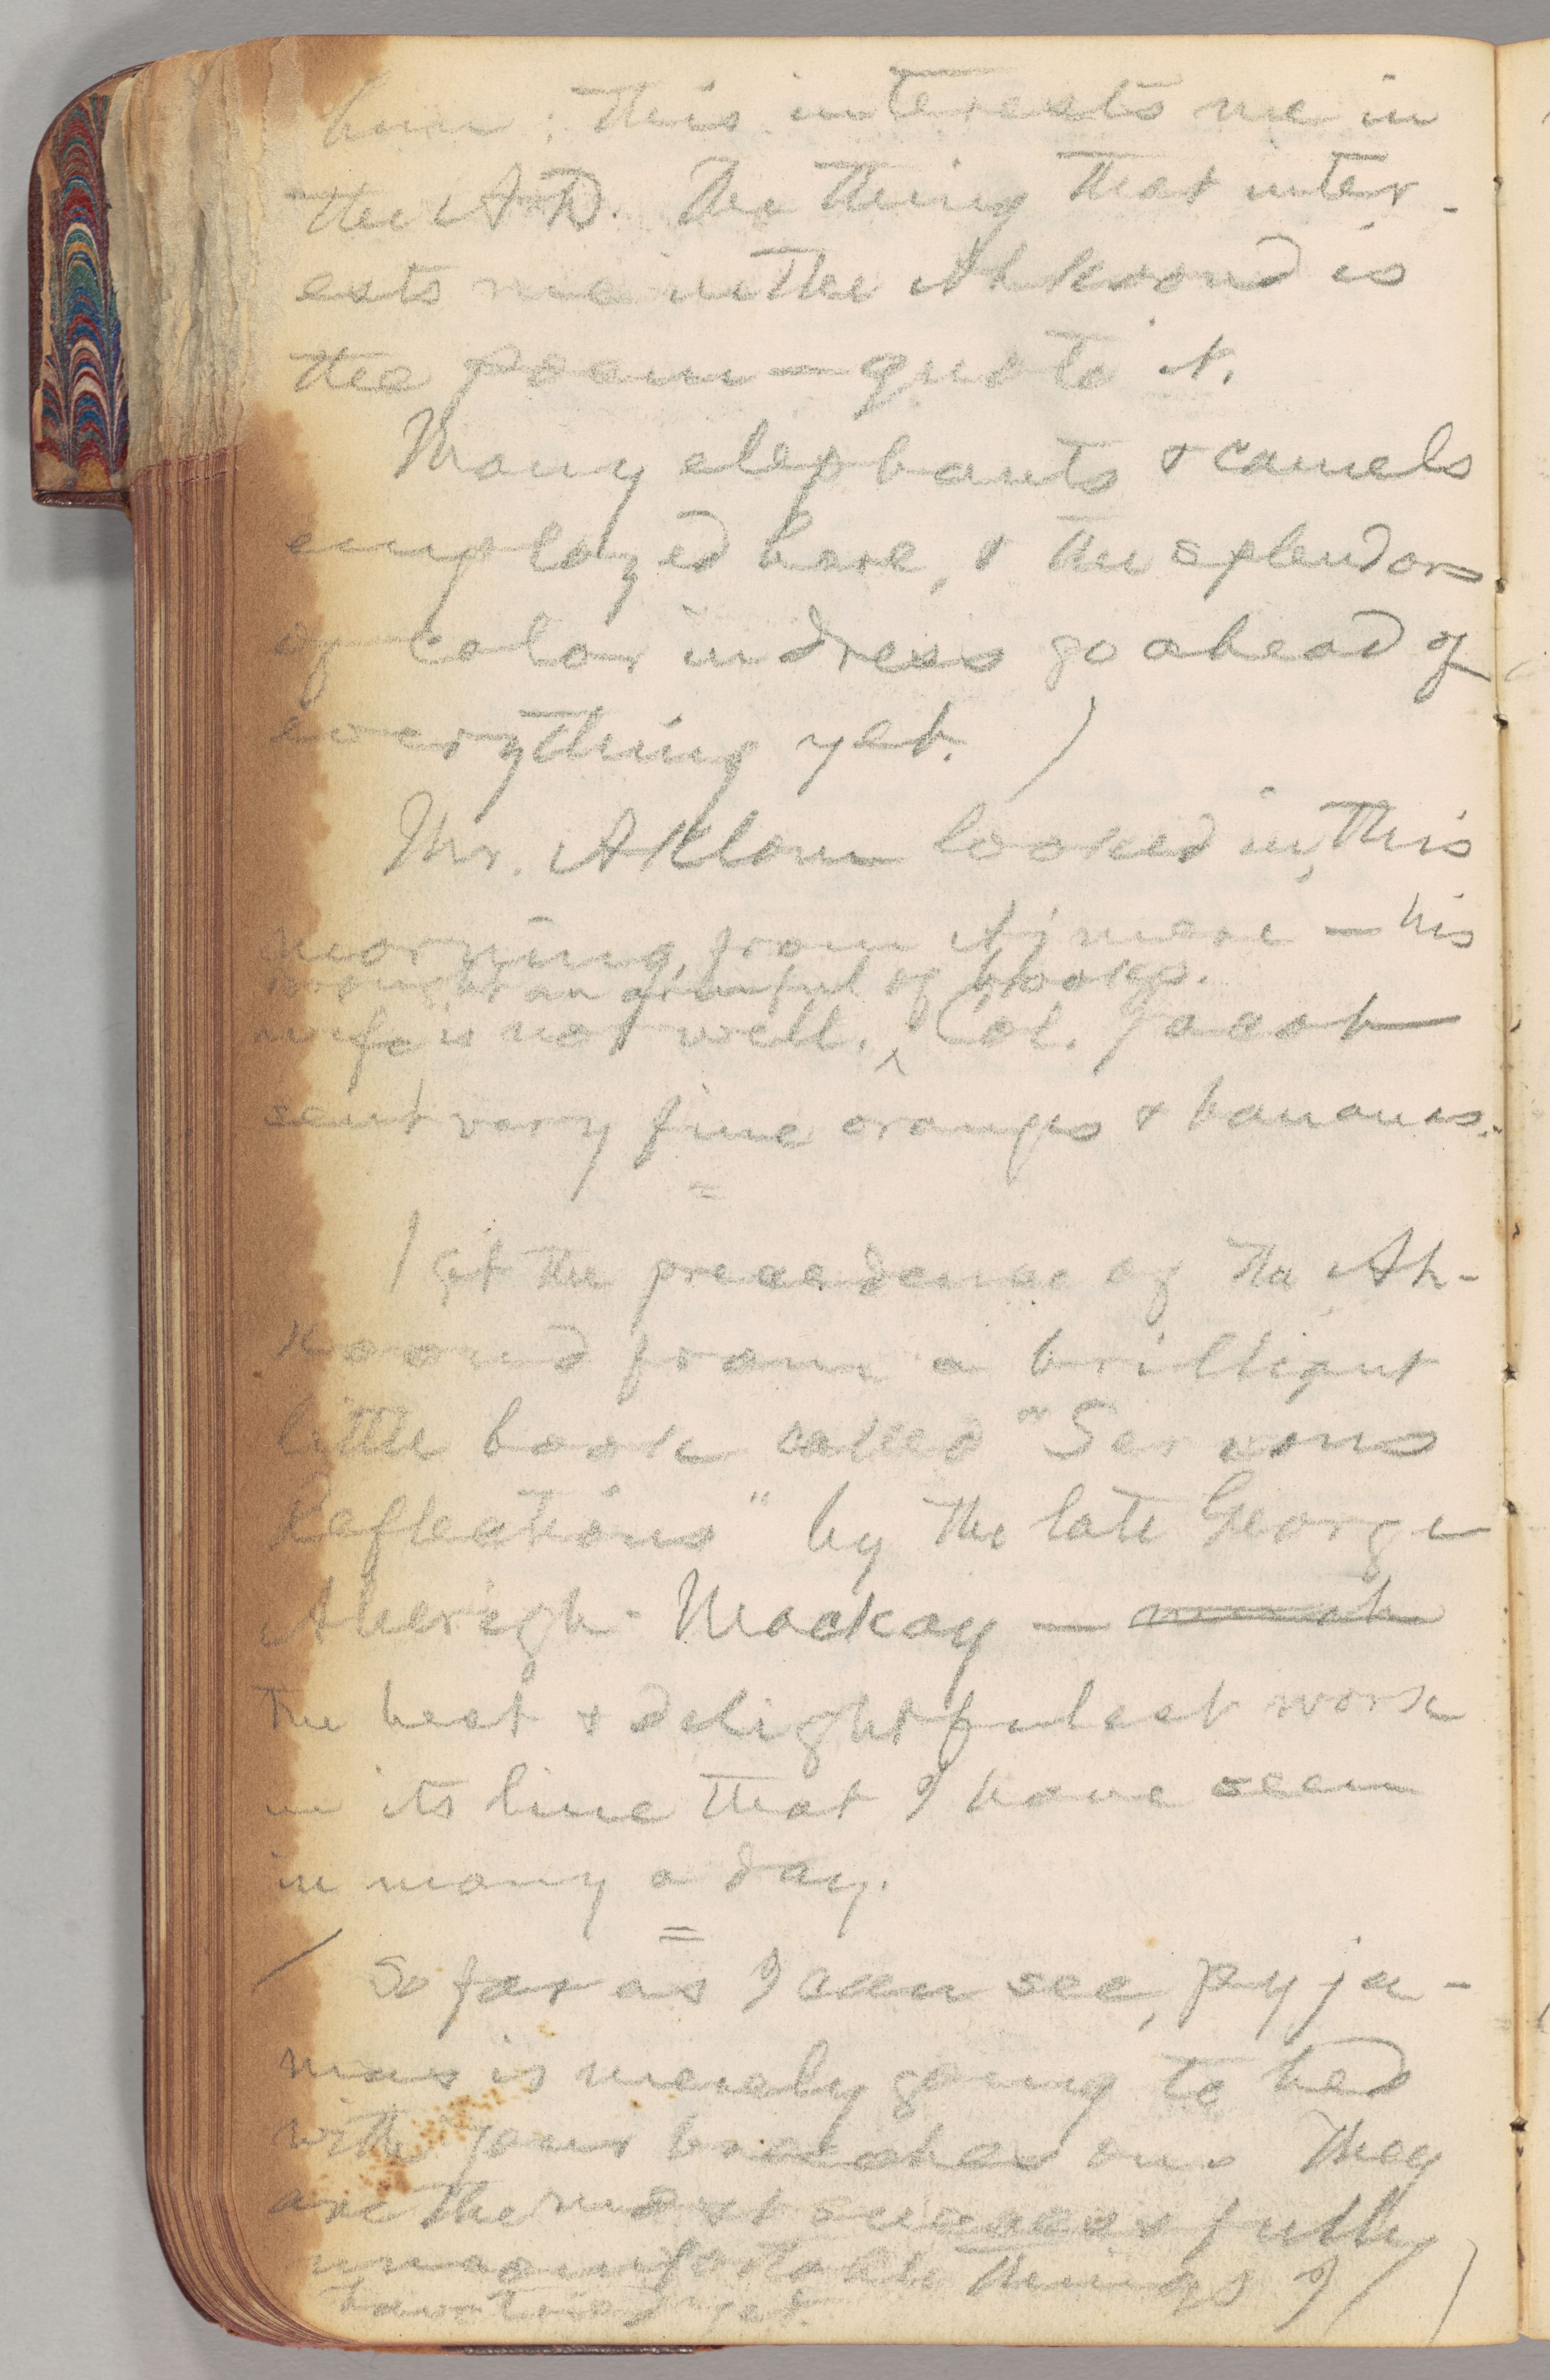 him; this interests me in
the A D. The thing that inter-
ests me in the Ahkoond is
the poem — quote it.
Many elephants & camels
employed here, & the splendors
of color in dress go ahead of
everything yet. )
Mr. Aklom looked in, this
morning, from Ajmere — his
brought an armful of books.
wife is not well. ^ Col. Jacob
sent very fine oranges & bananas.
=
I got the precedence of the Ah-
koond from a brilliant
little book called "Serious
Reflections" by the late George
Aberigh-Mackay —
the best & delightfulest work
in its line that I have seen
in many a day.
=
/ So far as I can see, pyja-
mas is merely going to bed
with your breeches on. They
are the most successfully
uncomfortable things I /
have tried yet. )